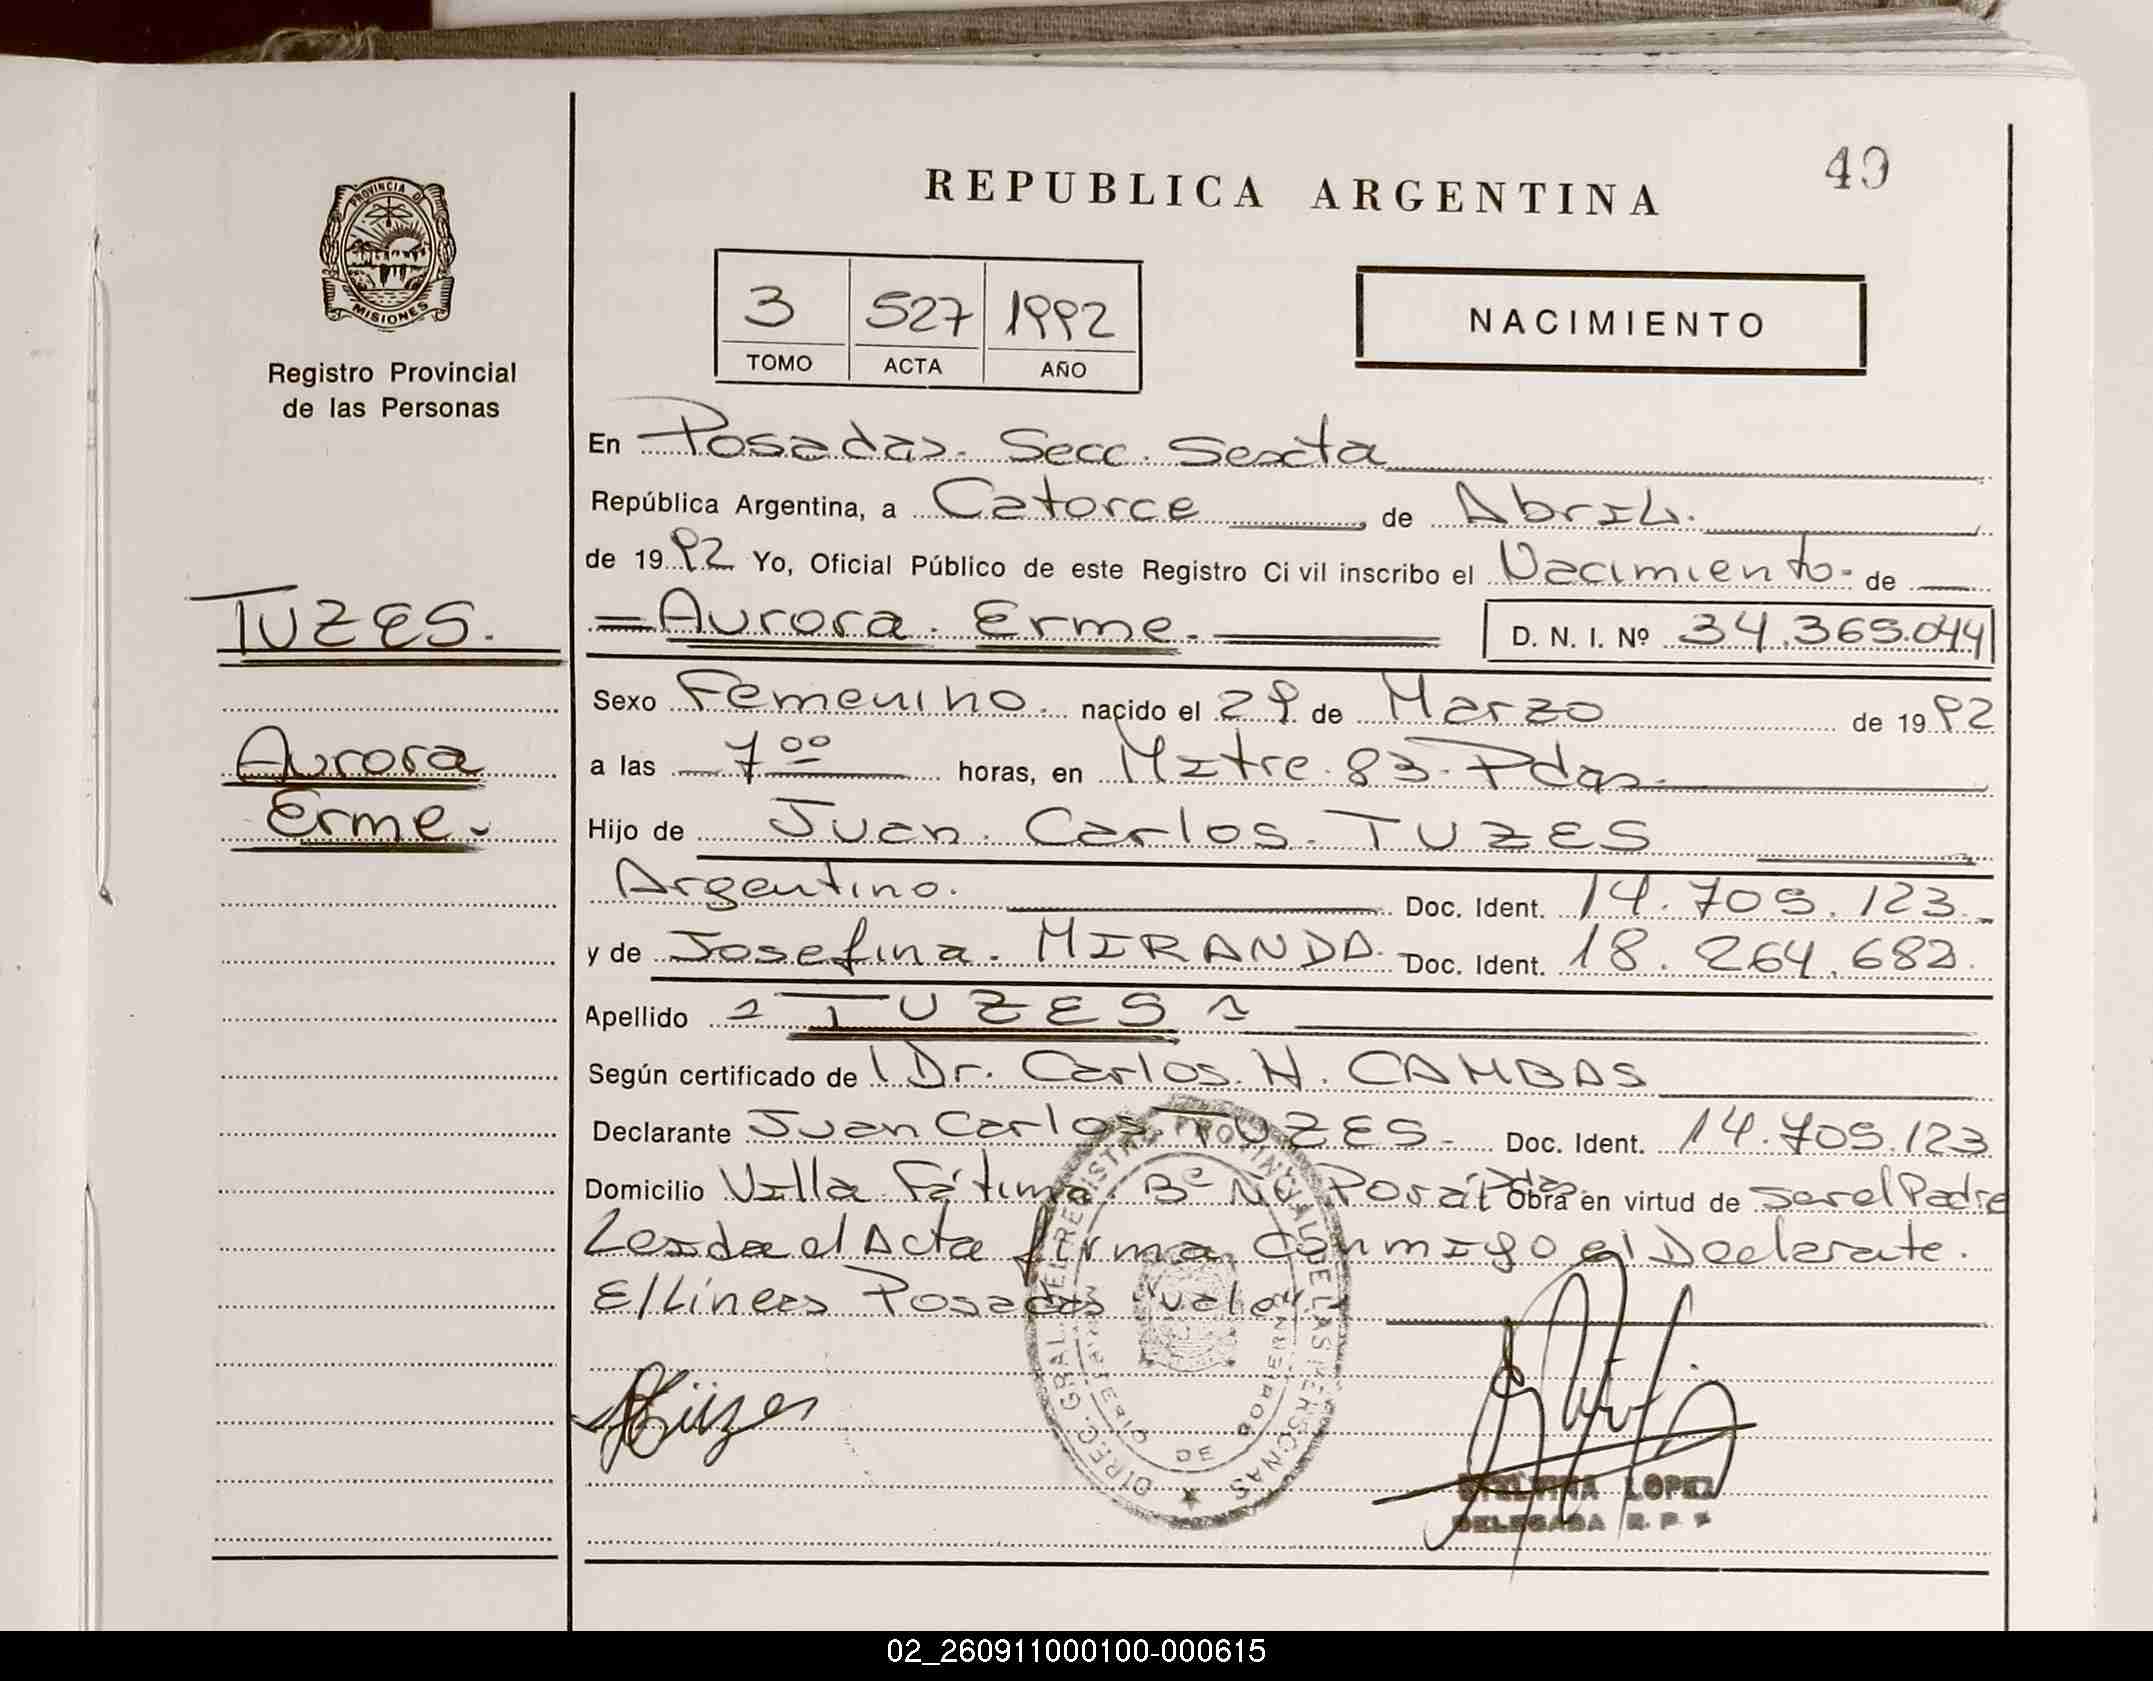 49
REPUBLICA ARGENTINA
PROVINCIA DE
MISIONES
Registro Provincial
de las Personas
3 527 1992
TOMO ACTA AÑO
NACIMIENTO
En Posadas. Secc. Sexta
República Argentina, a Catorce de Abril.
de 1992 Yo, Oficial Público de este Registro Civil inscribo el Nacimiento de
TUZES.
Aurora Erme. D. N. I. Nº 34.365.044
Sexo Femenino. nacido el 29 de Marzo de 1992
Aurora
Erme.
a las 7 00 horas, en Mitre. 83. Pdas.
Hijo de Juan. Carlos. TUZES
Argentino. Doc. Ident. 14.705.123
y de Josefina. MIRANDA. Doc. Ident. 18.264.682
Apellido TUZES
Según certificado de Dr. Carlos. H. CAMBAS
Declarante Juan Carlos. TUZES. Doc. Ident. 14.705.123
Domicilio Villa Fátima. Pdas. Obra en virtud de ser el Padre
Leida el Acta firma conmigo el Declarate.
E/Lineas Posadas "vale"
LOPEZ
DELEGADA R. P. P
02_260911000100-000615